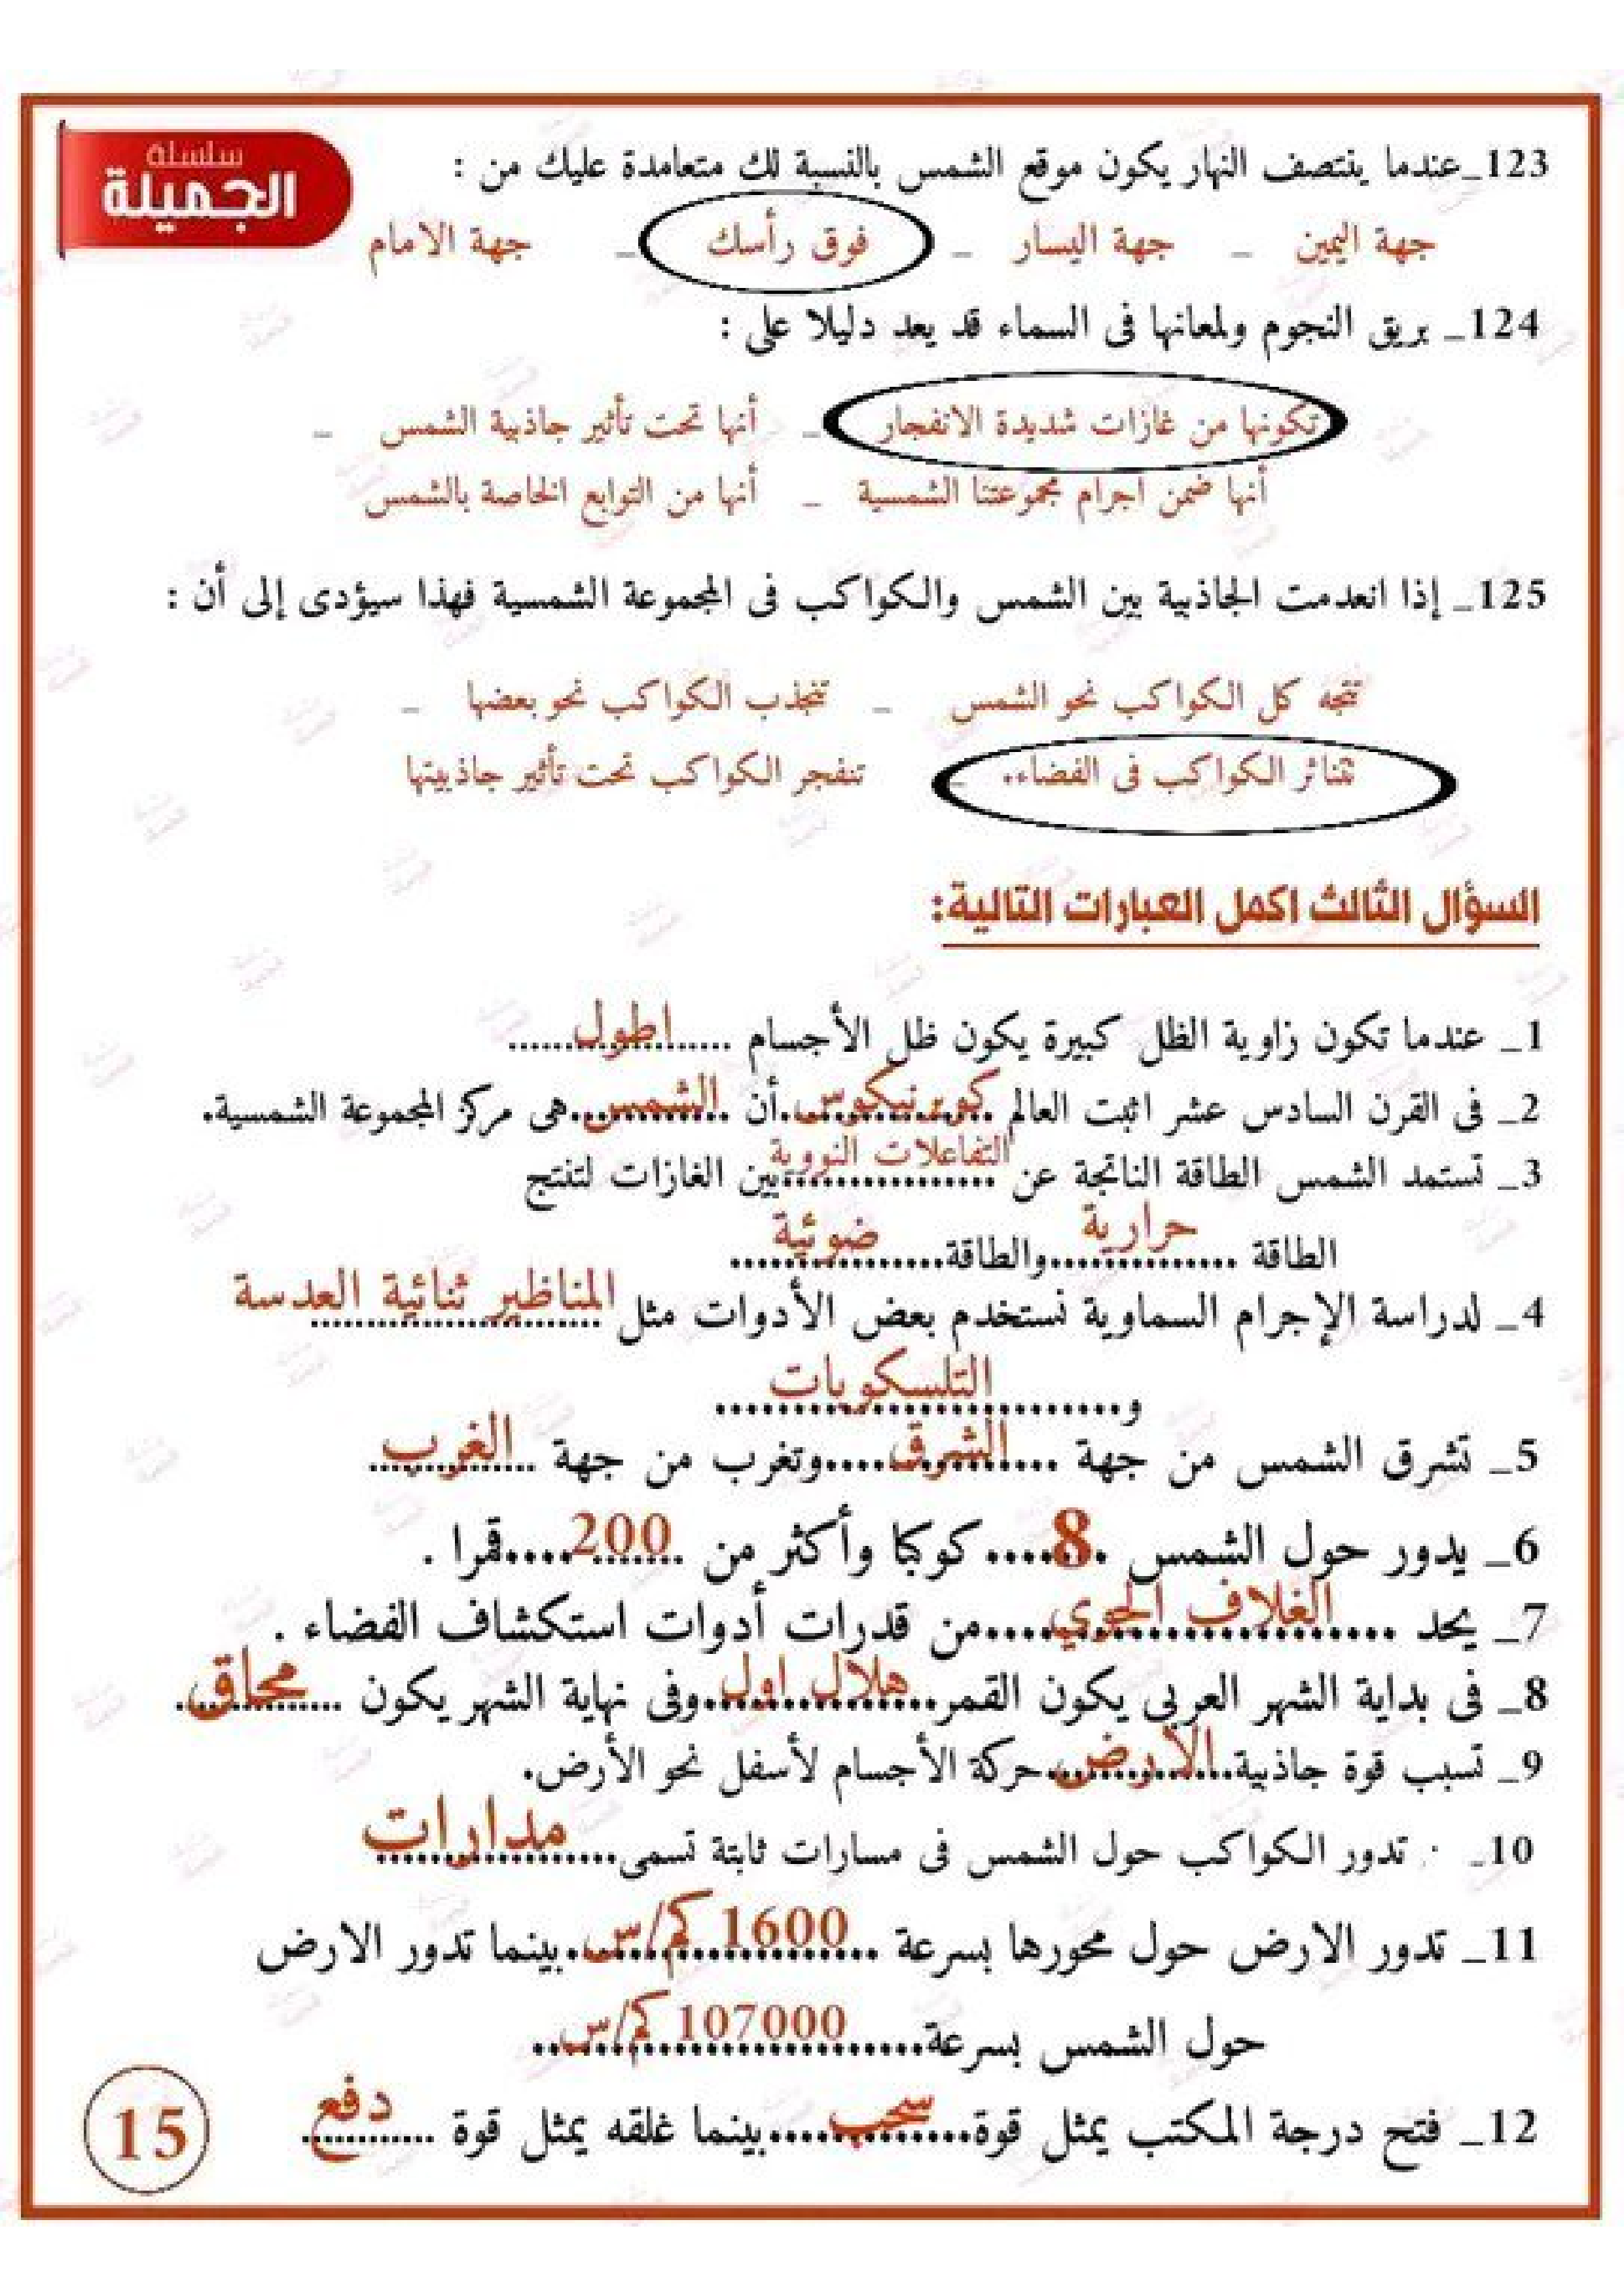 سلسلة
الجميلة
123_عندما ينتصف النهار يكون موقع الشمس بالنسبة لك متعامدة عليك من :
جهة اليمين _ جهة اليسار _ فوق رأسك _ جهة الامام
124_ بريق النجوم ولمعانها فى السماء قد يعد دليلا على :
تكونها من غازات شديدة الانفجار _ أنها تحت تأثير جاذبية الشمس _
أنها ضمن اجرام مجموعتنا الشمسية _ أنها من التوابع الخاصة بالشمس
125_ إذا انعدمت الجاذبية بين الشمس والكواكب فى المجموعة الشمسية فهذا سيؤدى إلى أن :
تتجه كل الكواكب نحو الشمس _ تنجذب الكواكب نحو بعضها _
تتناثر الكواكب فى الفضاء.. _ تنفجر الكواكب تحت تأثير جاذبيتها
السؤال الثالث اكمل العبارات التالية:
1_ عندما تكون زاوية الظل كبيرة يكون ظل الأجسام اطول
2_ فى القرن السادس عشر اثبت العالم كوبرنيكوس أن الشمس هى مركز المجموعة الشمسية.
3_ تستمد الشمس الطاقة الناتجة عن التفاعلات النووية بين الغازات لتنتج
الطاقة حرارية والطاقة ضوئية
4_ لدراسة الإجرام السماوية نستخدم بعض الأدوات مثل المناظير ثنائية العدسة
و التلسكوبات
5_ تشرق الشمس من جهة الشرق وتغرب من جهة الغرب
6_ يدور حول الشمس 8 كوكبا وأكثر من 200 قمرا .
7_ يحد الغلاف الجوي من قدرات أدوات استكشاف الفضاء .
8_ فى بداية الشهر العربى يكون القمر هلال اول وفى نهاية الشهر يكون محاق
9_ تسبب قوة جاذبية الارض حركة الأجسام لأسفل نحو الأرض.
10_ تدور الكواكب حول الشمس فى مسارات ثابتة تسمى مدارات
11_ تدور الارض حول محورها بسرعة 1600 كم/س بينما تدور الارض
حول الشمس بسرعة 107000 كم/س
12_ فتح درجة المكتب يمثل قوة سحب بينما غلقه يمثل قوة دفع
15